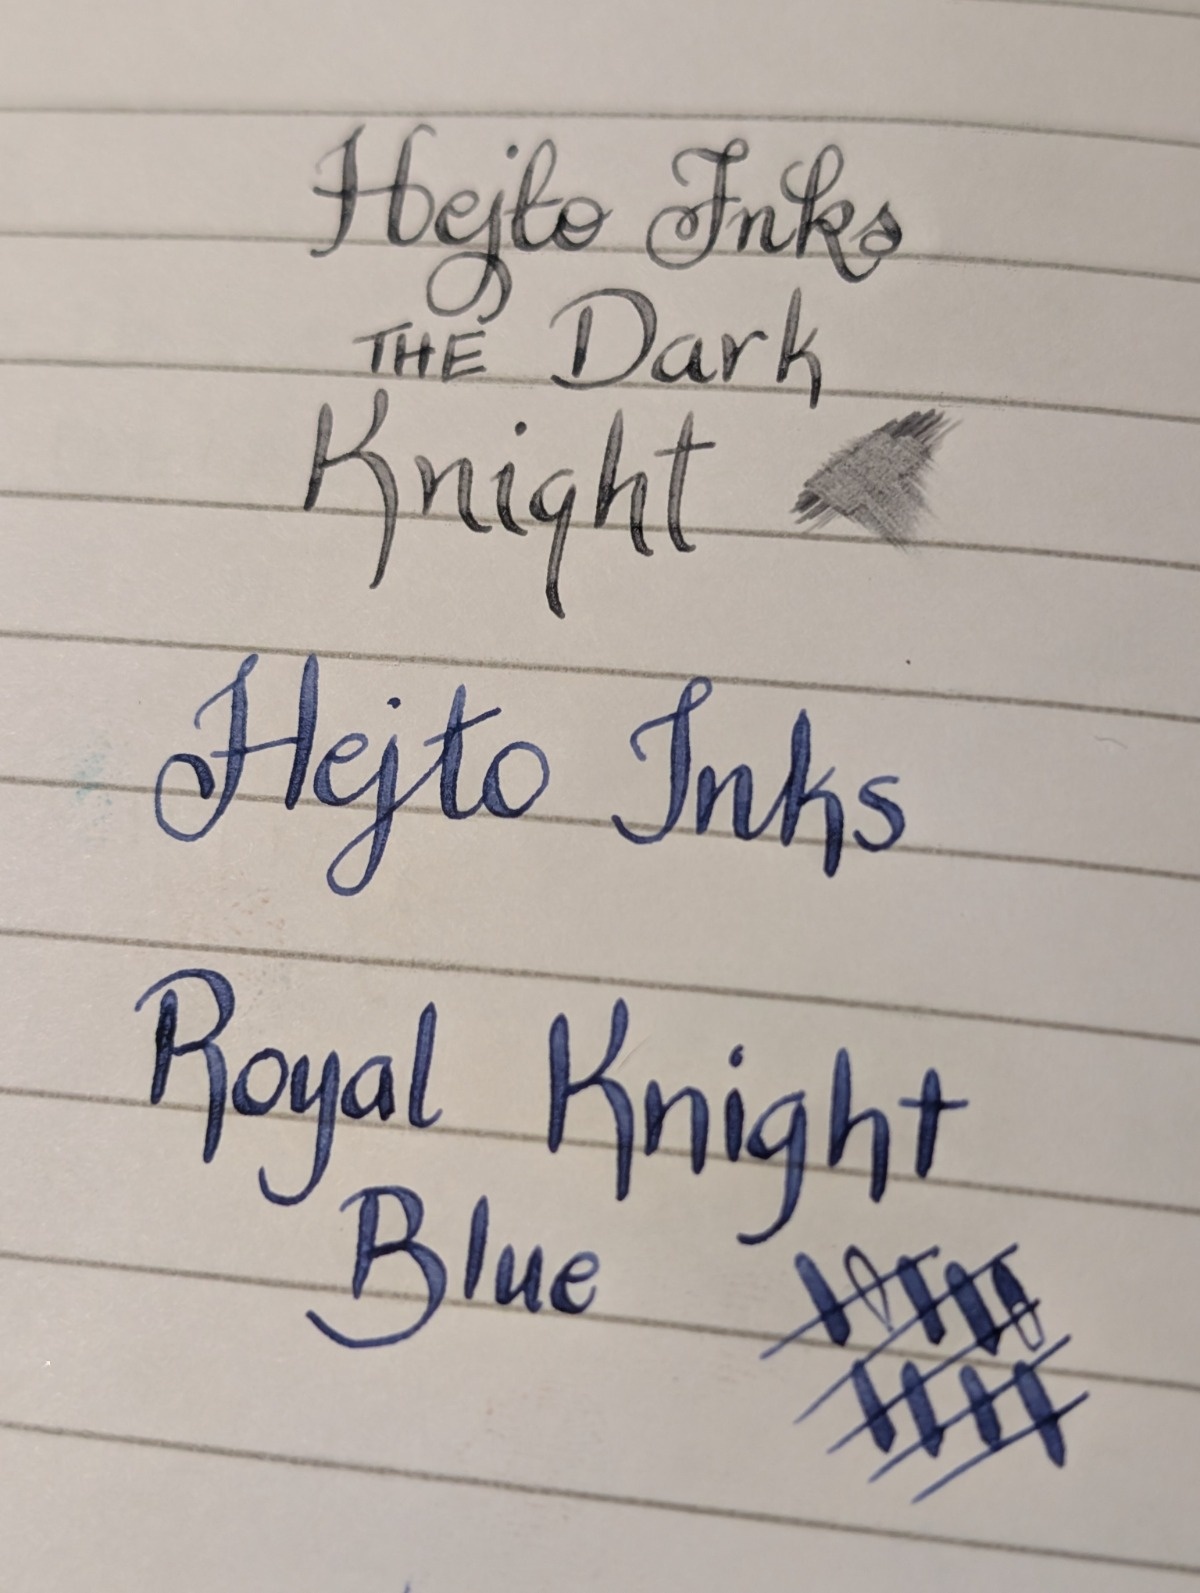 Hejto Inks
THE Dark
Knight
Hejto Inks
Royal Knight
Blue